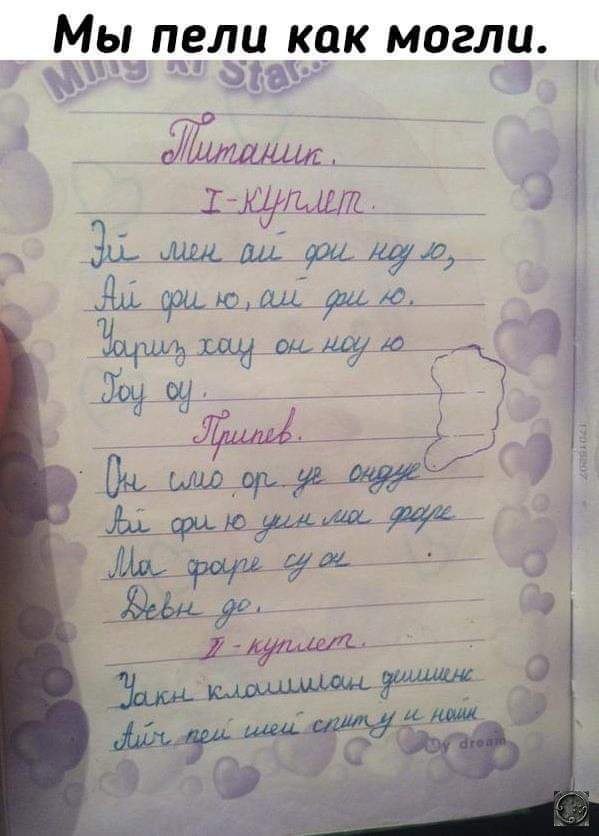 Мы пели как могли.
Ming ki Star...
Титаник.
I-куплет.
Эй мен ай фи ноу ю,
Ай фи ю, ай фи ю.
Уариз хау он ноу ю
Гоу оу.
Припев.
Он смо ор уе ондуе
Ай фи ю уин ма фаре
Ма фаре су он
Девн до.
II-куплет.
Уакн клашшан
Айч пей шей спит у и найн
My dream
17019207